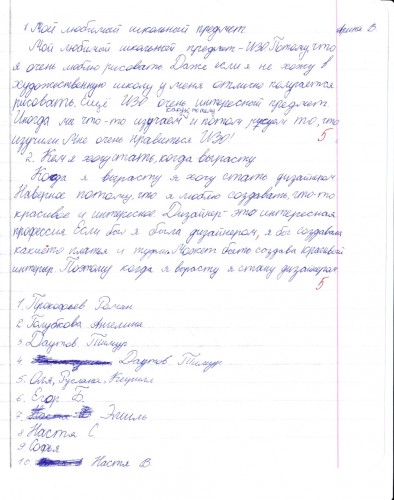 1. Мой любимый школьный предмет.
Мой любимый школьный предмет - ИЗО. Потому что
я очень люблю рисовать. Даже если я не хожу в
художественную школу у меня отлично получается
рисовать. Ещё ИЗО очень интересной предмет.
Иногда мы что-то изучаем и потом рисуем то, что
изучили. Мне очень нравиться ИЗО!
5
2. Кем я хочу стать, когда вырасту
Когда я вырасту я хочу стать дизайнером
Наверное потому, что я люблю создавать что-то
красивое и интересное. Дизайнер - это интересная
профессия. Если бы я была дизайнером, я бы создавала
какие-то платья и туфли. Может быть создава красивой
интерьер. Поэтому когда я вырасту я стану дизайнером
5
1. Прокофьев Роман
2. Голубкова Ангелина
3. Даутов Тимур
4. Даутов Тимур
5. Оля, Руслана,
6. Егор Б.
7. Эмиль
8. Настя С.
9. Софья
10. Настя В.